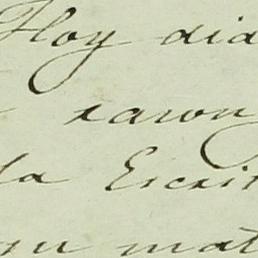 Hoy dia
xaron
la Escrit
su mat